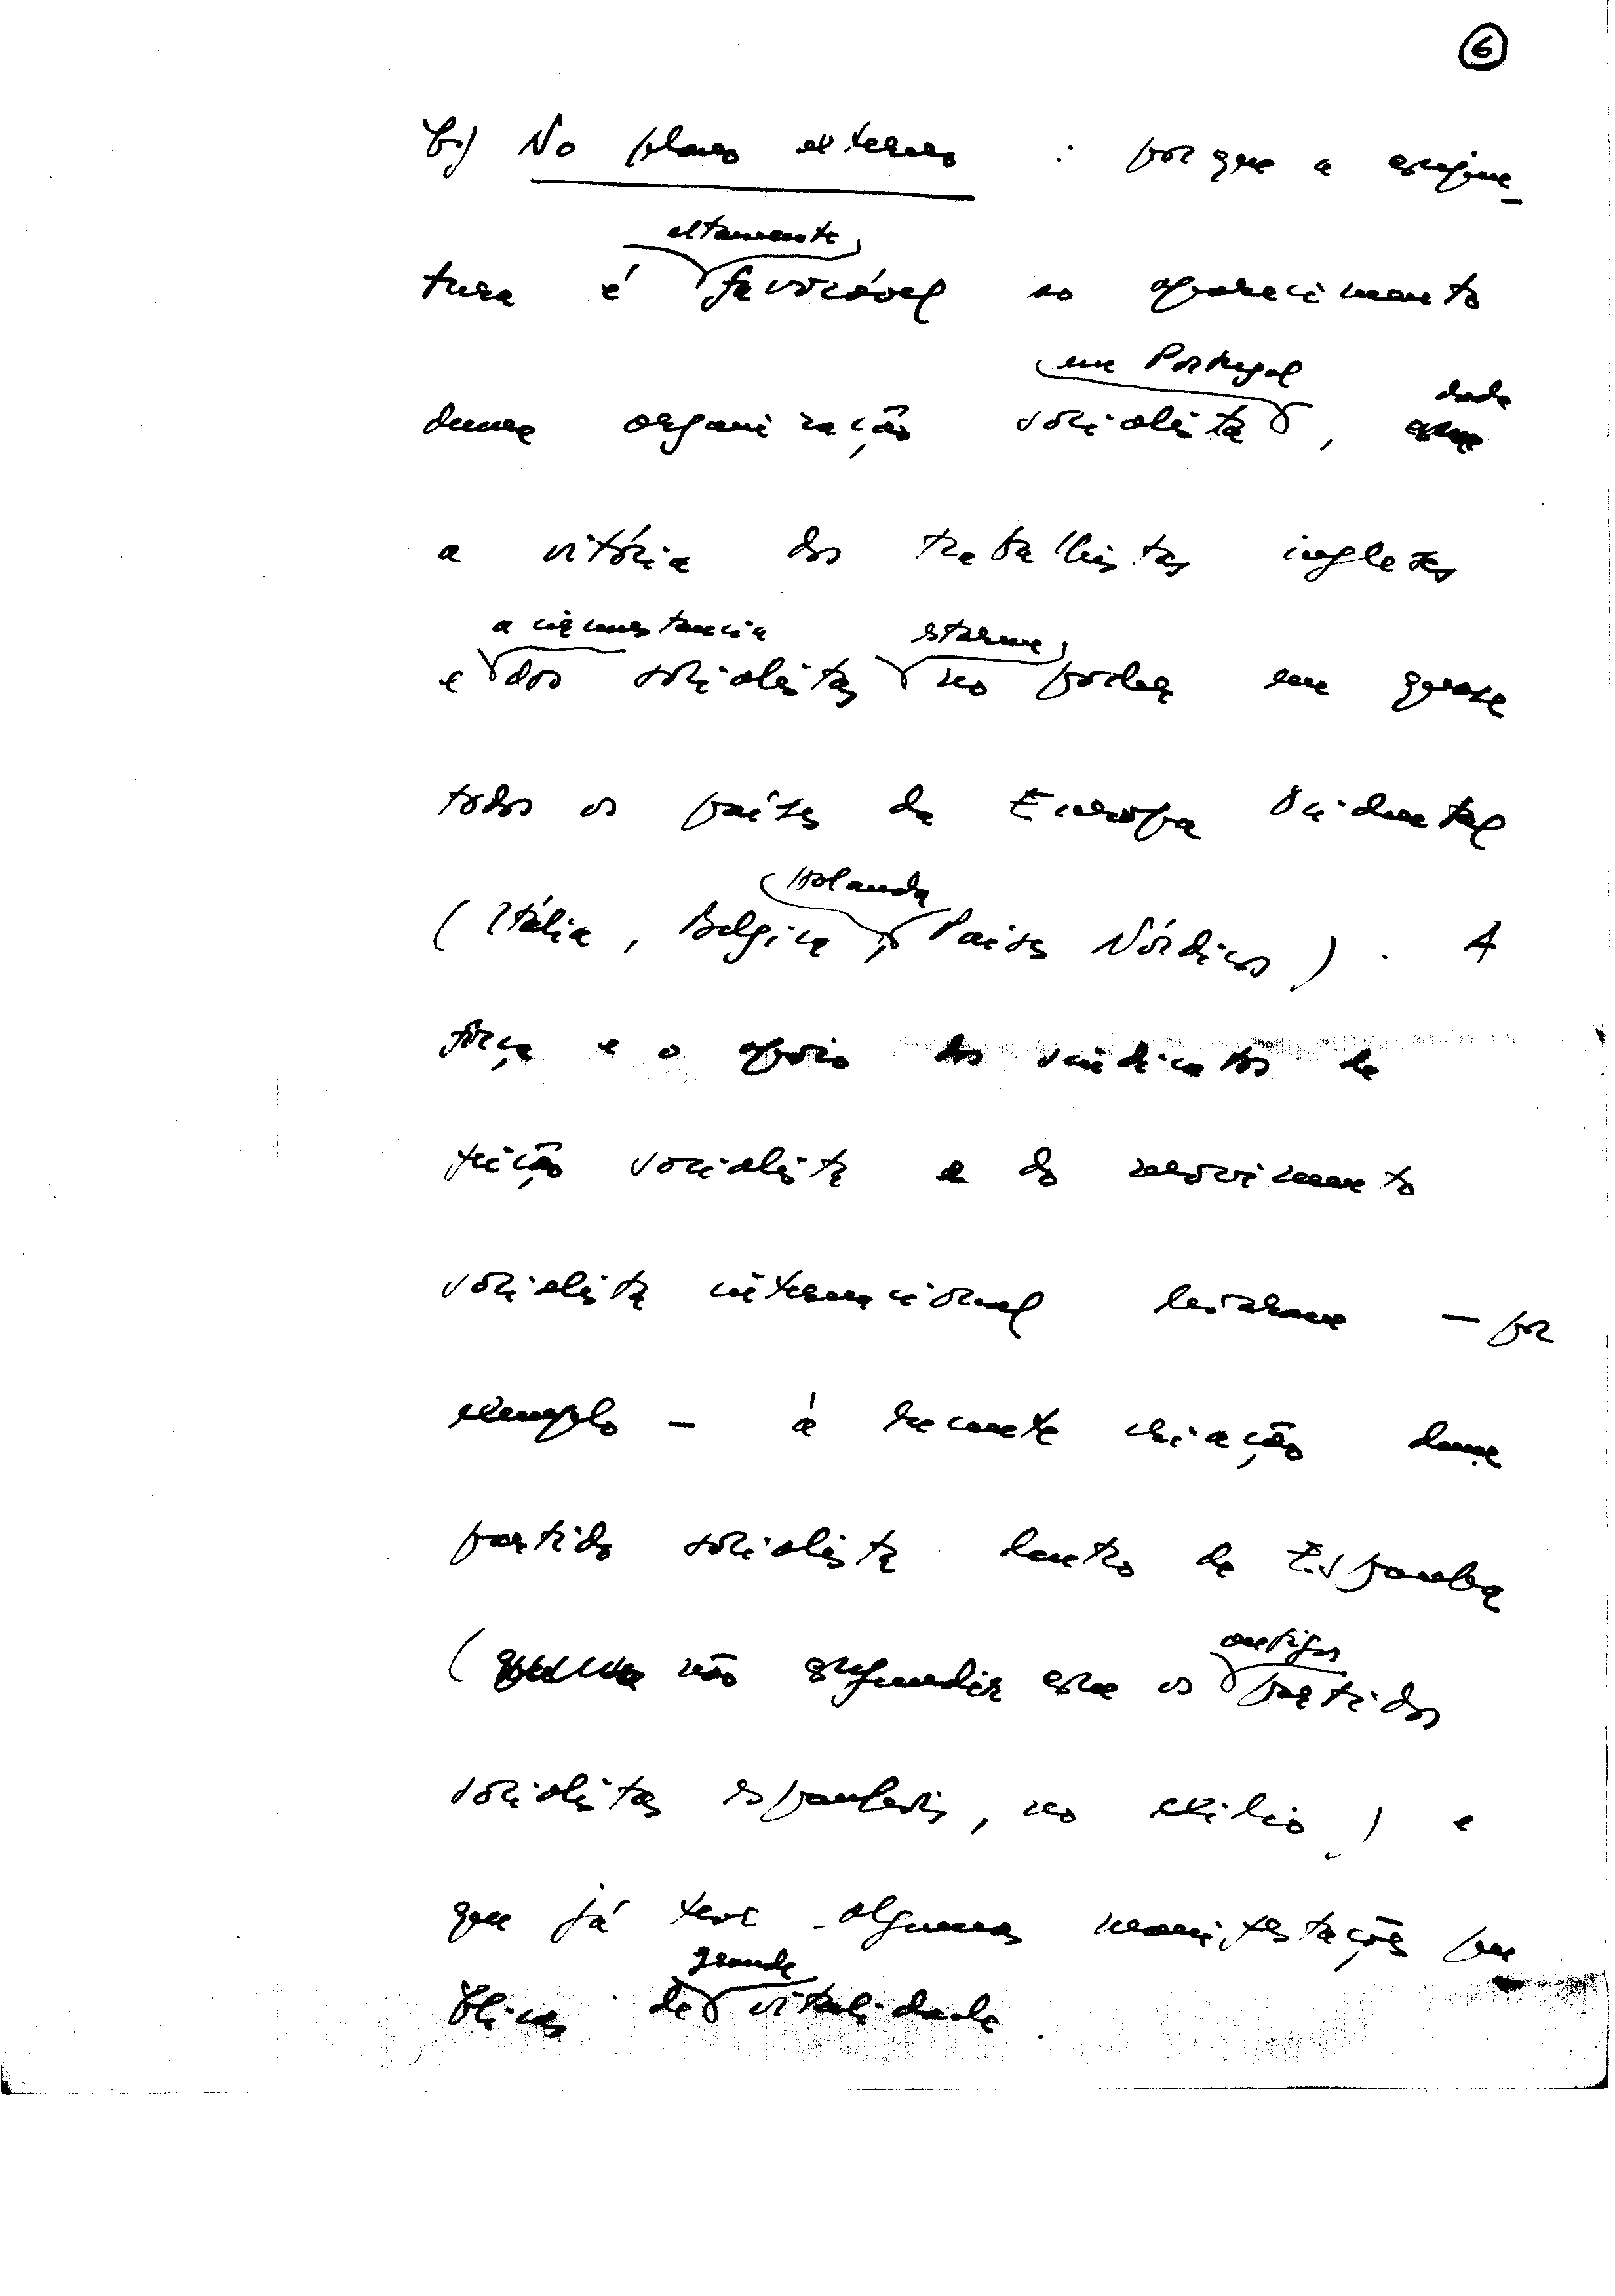 6
b) No plano externo : porque a conjun-
altamente
tura é favorável ao aparecimento
em Portugal
duma organização socialista, dada
a vitória dos trabalhistas ingleses
a circunstancia estarem
e dos socialistas no poder em quase
todos os países da Europa Ocidental
Holanda
(Itália, Belgica, Paises Nórdicos). A
força e o apoio dos sindicatos de
feição socialista e do movimento
socialista internacional levaram - por
exemplo - à recente criação dum
partido socialista dentro de Espanha
antigos
( não confundir com os partidos
socialistas espanhois, no exilio) e
que já teve algumas manifestações pu
grande
blicas de vitalidade.